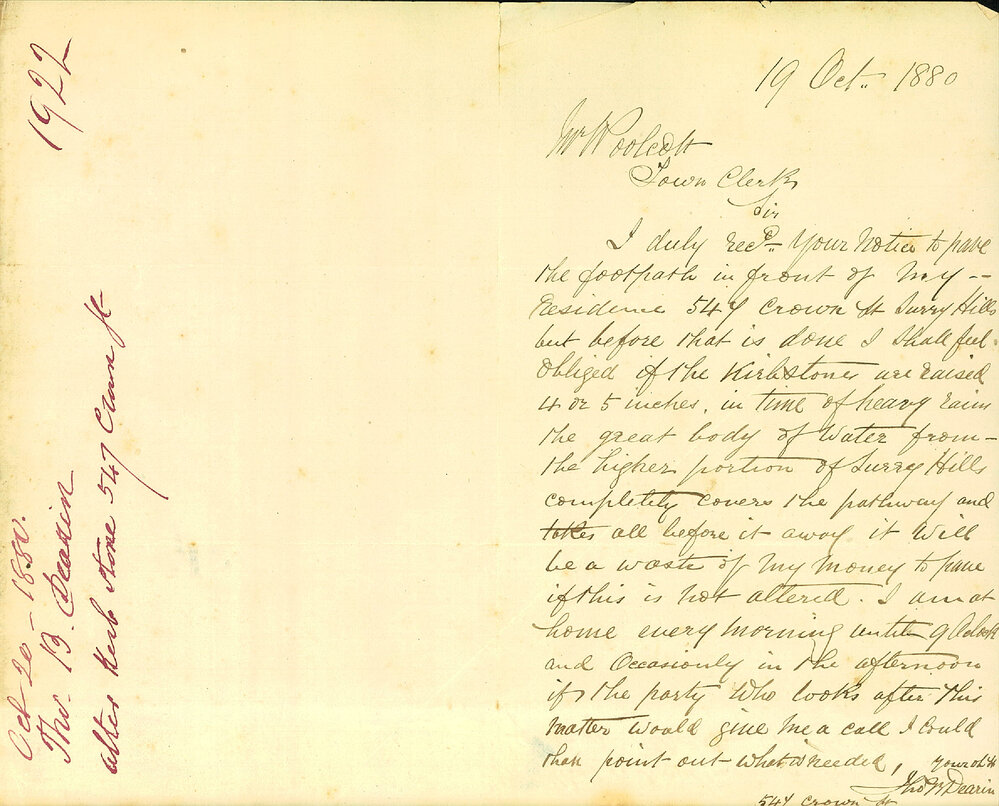 1922
Oct 20 - 1880.
Tho. B. Dearin
alter Kerb Stone 547 Crown St
19 Oct. 1880
Mr Woolcott
Town Clerk
Sir
I duly recd. Your Notice to pave
the footpath in front of My --
Residence 547 Crown St Surry Hills
but before that is done I shall feel
Obliged if the Kirbstones are raised
4 or 5 inches. in time of heavy rains
the great body of Water from -
the higher portion of Surry Hills
completely covers the pathway and
takes all before it away it Will
be a waste of My Money to pave
if this is not altered. I am at
home every Morning until 9 OClock
and Occasionly in the afternoon
if the party Who looks after this
Matter Would give me a call I Could
than point out What is needed, Your
Tho B Dearin
547 Crown St